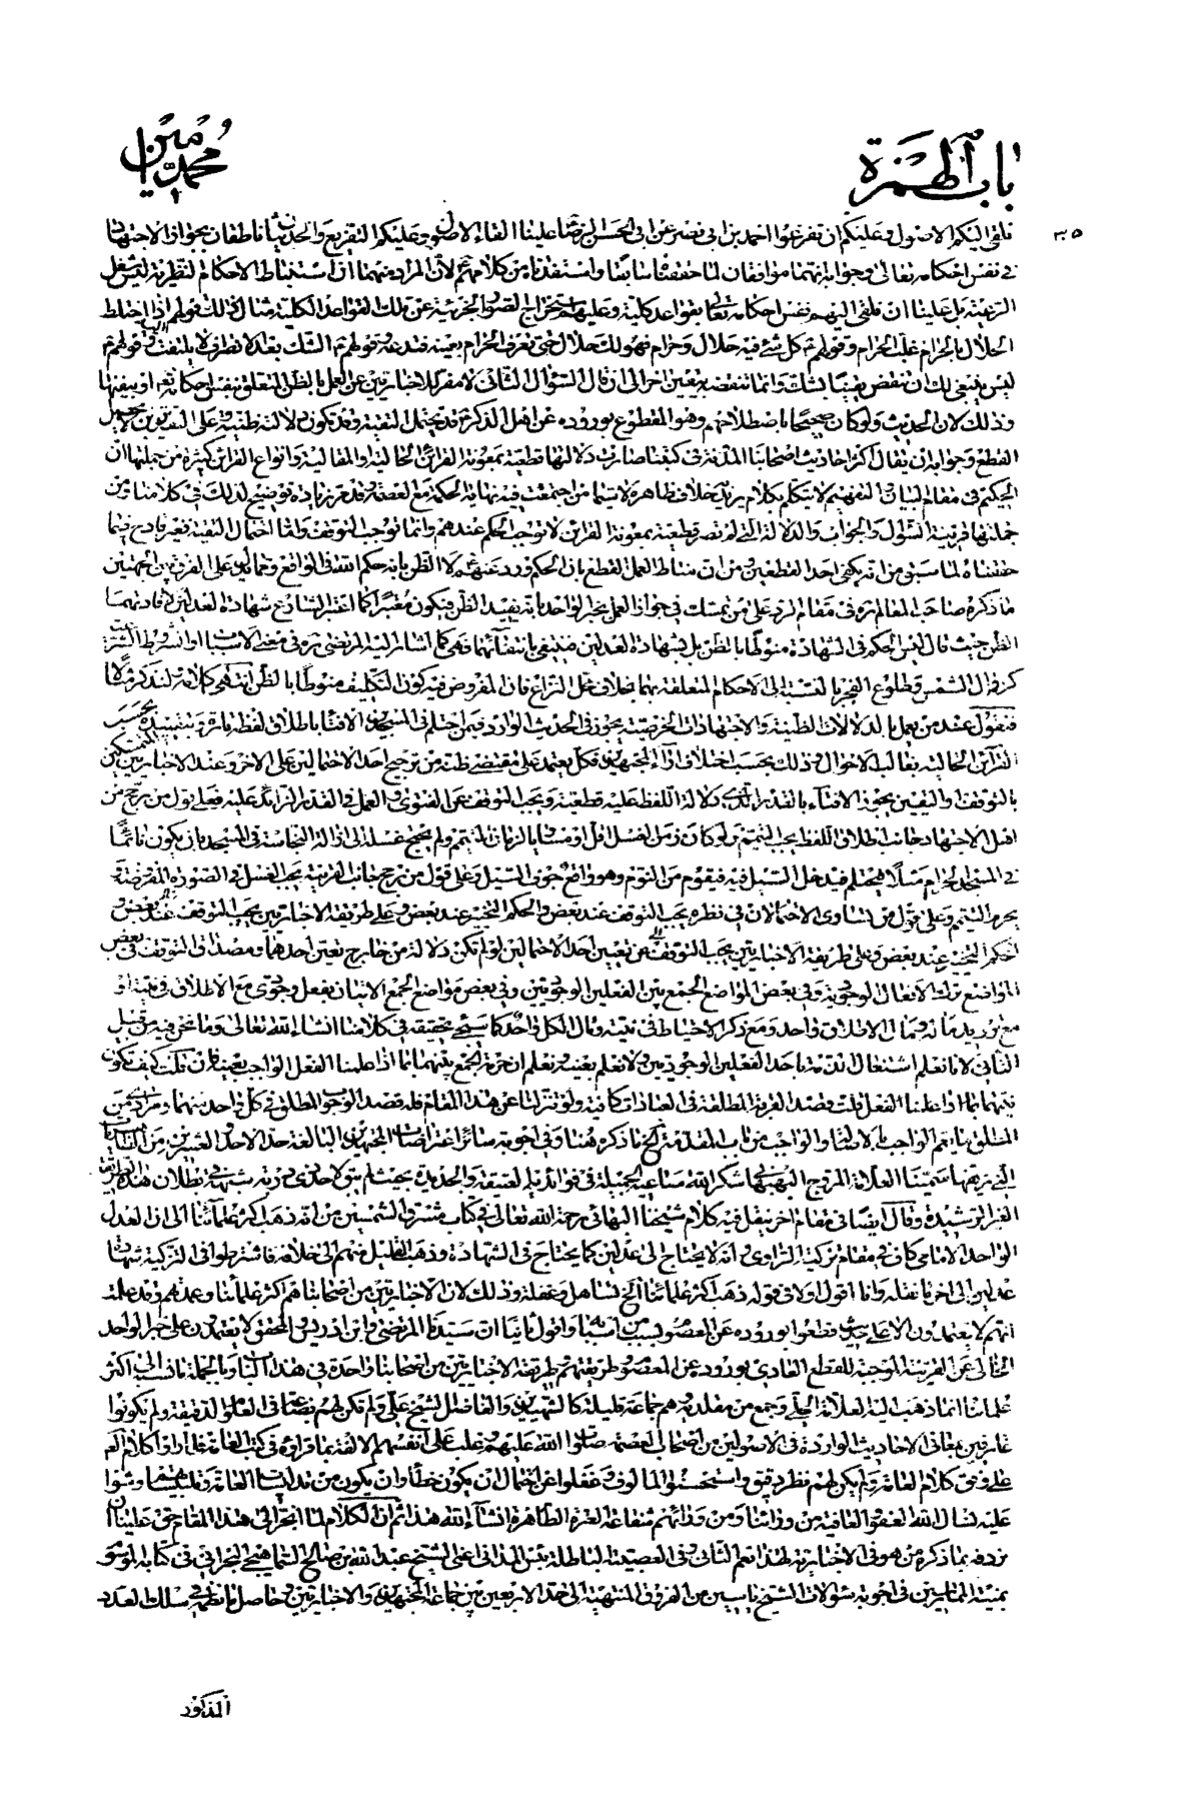 باب الهمزة
محمد امين
٣٥
نلقي اليكم الاصول وعليكم ان تفرعوا احمد بن ابي نصر عن ابي الحسن الرضا علينا القاء الاصول وعليكم التفريع والحديثان ناطقان بجواز الاجتهاد
في نفس احكامه تعالى وجوابه انهما موافقان لما حققناه سابقا واستفدناه من كلامهم لان المراد منهما ان استنباط الاحكام النظرية ليس شغل
الرعية بل علينا ان نلقي اليهم نفس احكامه تعالى بقواعد كلية وعليهم استخراج الصور الجزئية عن تلك القواعد الكلية مثال ذلك قولهم اذا اختلط
الحلال بالحرام غلب الحرام وقولهم كل شيء فيه حلال وحرام فهو لك حلال حتى تعرف الحرام بعينه فتدعه وقولهم الشك بعد الانصراف لا يلتفت اليه وقولهم
ليس ينبغي لك ان تنقض يقينا بشك وانما تنقضه بيقين اخر الى ان قال السؤال الثاني لا مفر للاخباريين عن العمل بالظن المتعلق بنفس احكامه تعالى او بنفيها
وذلك لان الحديث ولو كان صحيحا باصطلاحهم وهو المقطوع بوروده عن اهل الذكر قد يحتمل التقية وقد تكون دلالته ظنية وعلى التقديرين لا يحصل
القطع وجوابه ان يقال اكثر احاديث اصحابنا المدونة في كتبنا صارت دلالتها قطعية بمعونة القرائن الحالية والمقالية وانواع القرائن كثيرة من جملتها ان
الحكيم في مقام البيان والتفهيم لا يتكلم بكلام يريد خلاف ظاهره لا سيما من اجتمعت فيه نهاية الحكمة مع العصمة وقد مر زيادة توضيح لذلك في كلامنا ومن
جملتها قرينة السؤال والجواب والدلالة التي لم تصر قطعية بمعونة القرائن لا توجب الحكم عندهم وانما توجب التوقف واما احتمال التقية فغير قادح فيما
حققناه لما سبق من انه يكفي احد القطعين ومن ان مناط العمل القطع بان الحكم ورد عنهم لا الظن بانه حكم الله في الواقع ومما يدل على الفرق بين الجهتين
ما ذكره صاحب المعالم ره في مقام الرد على من تمسك في جواز العمل بخبر الواحد بانه يفيد الظن فيكون معتبرا كما اعتبر الشارع شهادة العدلين لافادتهما
الظن حيث قال ليس الحكم في الشهادة منوطا بالظن بل بشهادة العدلين فينتفي بانتفائهما فهي كما اشار اليه المرتضى ره في معنى الاسباب او الشروط الشرعية
كزوال الشمس وطلوع الفجر بالنسبة الى الاحكام المتعلقة بهما بخلاف محل النزاع فان المفروض فيه كون التكليف منوطا بالظن انتهى كلامه لنذكر مثالا
فنقول عند من يعمل بالدلالات الظنية والاجتهادات الخرصية يجوز في الحديث الوارد فيمن احتلم في المسجدين الافتاء باطلاق لفظه تارة وبتقييده بحسب
القرآن الحالية بغالب الاحوال وذلك بحسب اختلاف اراء المجتهدين فكل يعتمد على مقتضى ظنه من ترجيح احد الاحتمالين على الاخر وعند الاخباريين المتمسكين
بالتوقف واليقين يجوز الافتاء بالقدر الذي دلالة اللفظ عليه قطعية ويجب التوقف عن الفتوى والعمل في القدر الزائد عليه فعلى قول من رجح من
اهل الاجتهاد جانب اطلاق اللفظ يجب التيمم ولو كان زمن الغسل اقل او مساويا لزمان التيمم ولم يحتج غسله الى ازالة النجاسة في المسجد بان يكون نائما
في المسجد الحرام مثلا فيحتلم فيدخل السيل فيه فيقوم من النوم وهو واقع جوف السيل وعلى قول من رجح جانب القرينة يجب الغسل في الصورة المفروضة
يحرم التيمم وعلى قول من تساوى الاحتمالات في نظره يجب التوقف عند بعض والحكم التخيير عند بعض وعلى طريقة الاخباريين يجب التوقف عند بعض و
الحكم التخيير عند بعض وعلى طريقة الاخباريين يجب التوقف عن تعيين احد الاحتمالين لو لم تكن دلالة من خارج تعين احدهما ومصداق التوقف في بعض
المواضع ترك الافعال الوجودية وفي بعض المواضع الجمع بين الفعلين الوجوديين وفي بعض مواضع الجمع الاتيان بفعل وجودي مع الاطلاق في نيته او
مع ترديد ما ومآل الاطلاق واحد ومع ذكر الاحتياط في نيته ومآل الكل واحد كما سيجيء تحقيقه في كلامنا انشاء الله تعالى وما نحن فيه من قبيل
الثاني لانا نعلم اشتغال الذمة باحد الفعلين الوجوديين ولا نعلم بعينه ونعلم ان حرمة الجمع بينهما انما اذا علمنا الفعل الواجب بعينه فان قلت كيف تكون
نيتهما اذا علمنا الفعل قلت قصد القربة المطلقة في العبادات كافية ولو تنزلنا عن هذا المقام فله قصد الوجوب المطلق في كل واحد منهما ومرادي من
المطلق ما يعم الواجب بالاصالة والواجب من باب المقدمة الخ ما ذكره هنا وفي اجوبة سائر اعتراضات المجتهدين البالغة حد الاحد والعشرين من المقامات
التي زيفها سمينا العلامة المروج البهبهاني شكر الله مساعيه الجميلة في فوائديه العتيقة والجديدة بحيث لم يبق لاحد ذي دربة شبهة في بطلان هذه الطرائق
الغير الرشيدة وقال ايضا في مقام اخر ينقل فيه كلام شيخنا البهائي رحمة الله تعالى في كتاب مشرق الشمسين من انه ذهب اكثر علمائنا الى ان العدل
الواحد الامامي كاف في مقام تزكية الراوي انه لا يحتاج الى عدلين كما يحتاج في الشهادة وذهب القليل منهم الى خلافه فاشترطوا في التزكية شهادة
عدلين الى اخر ما نقله وانا اقول اولا في قوله ذهب اكثر علمائنا الخ تساهل وغفلة وذلك لان الاخباريين من اصحابنا هم اكثر علمائنا وعمدتهم وقد علمت
انهم لا يعتمدون الا على حديث قطعوا بوروده عن المعصوم بسبب من اسبابه واقول ثانيا ان سيدنا المرتضى وابن ادريس والمحقق لا يعتمدون على خبر الواحد
الخالي عن القرينة الموجبة للقطع العادي بورود عن المعصوم وطريقتهم طريقة الاخباريين من اصحابنا واحدة في هذا الباب وبالجملة ما نسبه الى اكثر
علمائنا انما ذهب اليه العلامة الحلي وجمع من مقلديه وهم جماعة قليلة كالشهيدين والفاضل الشيخ علي ولم تكن لهم بضاعة في العلوم الدقيقة ولم يكونوا
عارفين بمعاني الاحاديث الواردة في الاصولين من اصحاب العصمة صلوات الله عليهم وغلب على انفسهم الالفة بما قرأوه في كتب العامة فلما راوا كلام القوم
على وفق كلام العامة ولم يكن لهم نظر دقيق واستحسنوا المالوف وغفلوا عن احتمال ان يكون خطأ وان يكون من تدليسات العامة وتلبيساتهم ومشوا
عليه نسال الله العفو والعافية من وراثنا ومن ورائهم شفاعة العترة الطاهرة انشاء الله هذا ثم ان الكلام لما انجر الى هذا المقام حق علينا ان
نردفه بما ذكره من هو في الاخبارية لهذا نعم الثاني وفي العصبية الباطلة بئس المداني اعني الشيخ عبد الله بن صالح السماهيجي البحراني في كتابه الموسوم
بمنية الممارسين في اجوبة سؤالات الشيخ ياسين من الفروق المنتهية الى حد الاربعين بين جماعة المجتهدين والاخباريين وحاصل ما نظمه في سلك العدد
المذكور